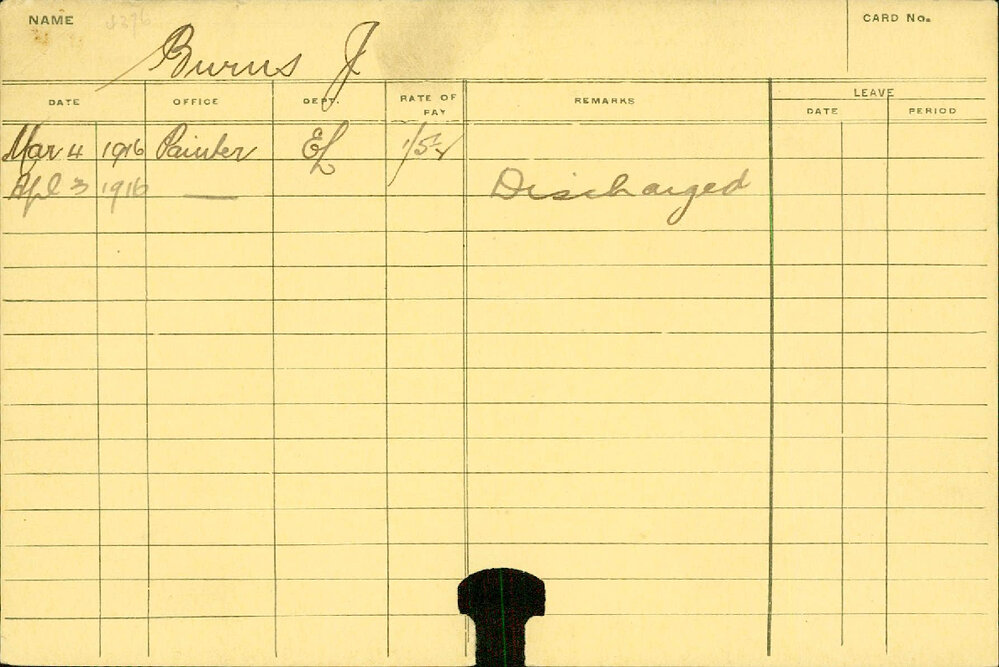 NAME
CARD No.
Burns J
DATE OFFICE DEPT. RATE OF PAY REMARKS LEAVE
DATE PERIOD
Mar 4 1916 Painter EL
Apl 3 1916 — Discharged